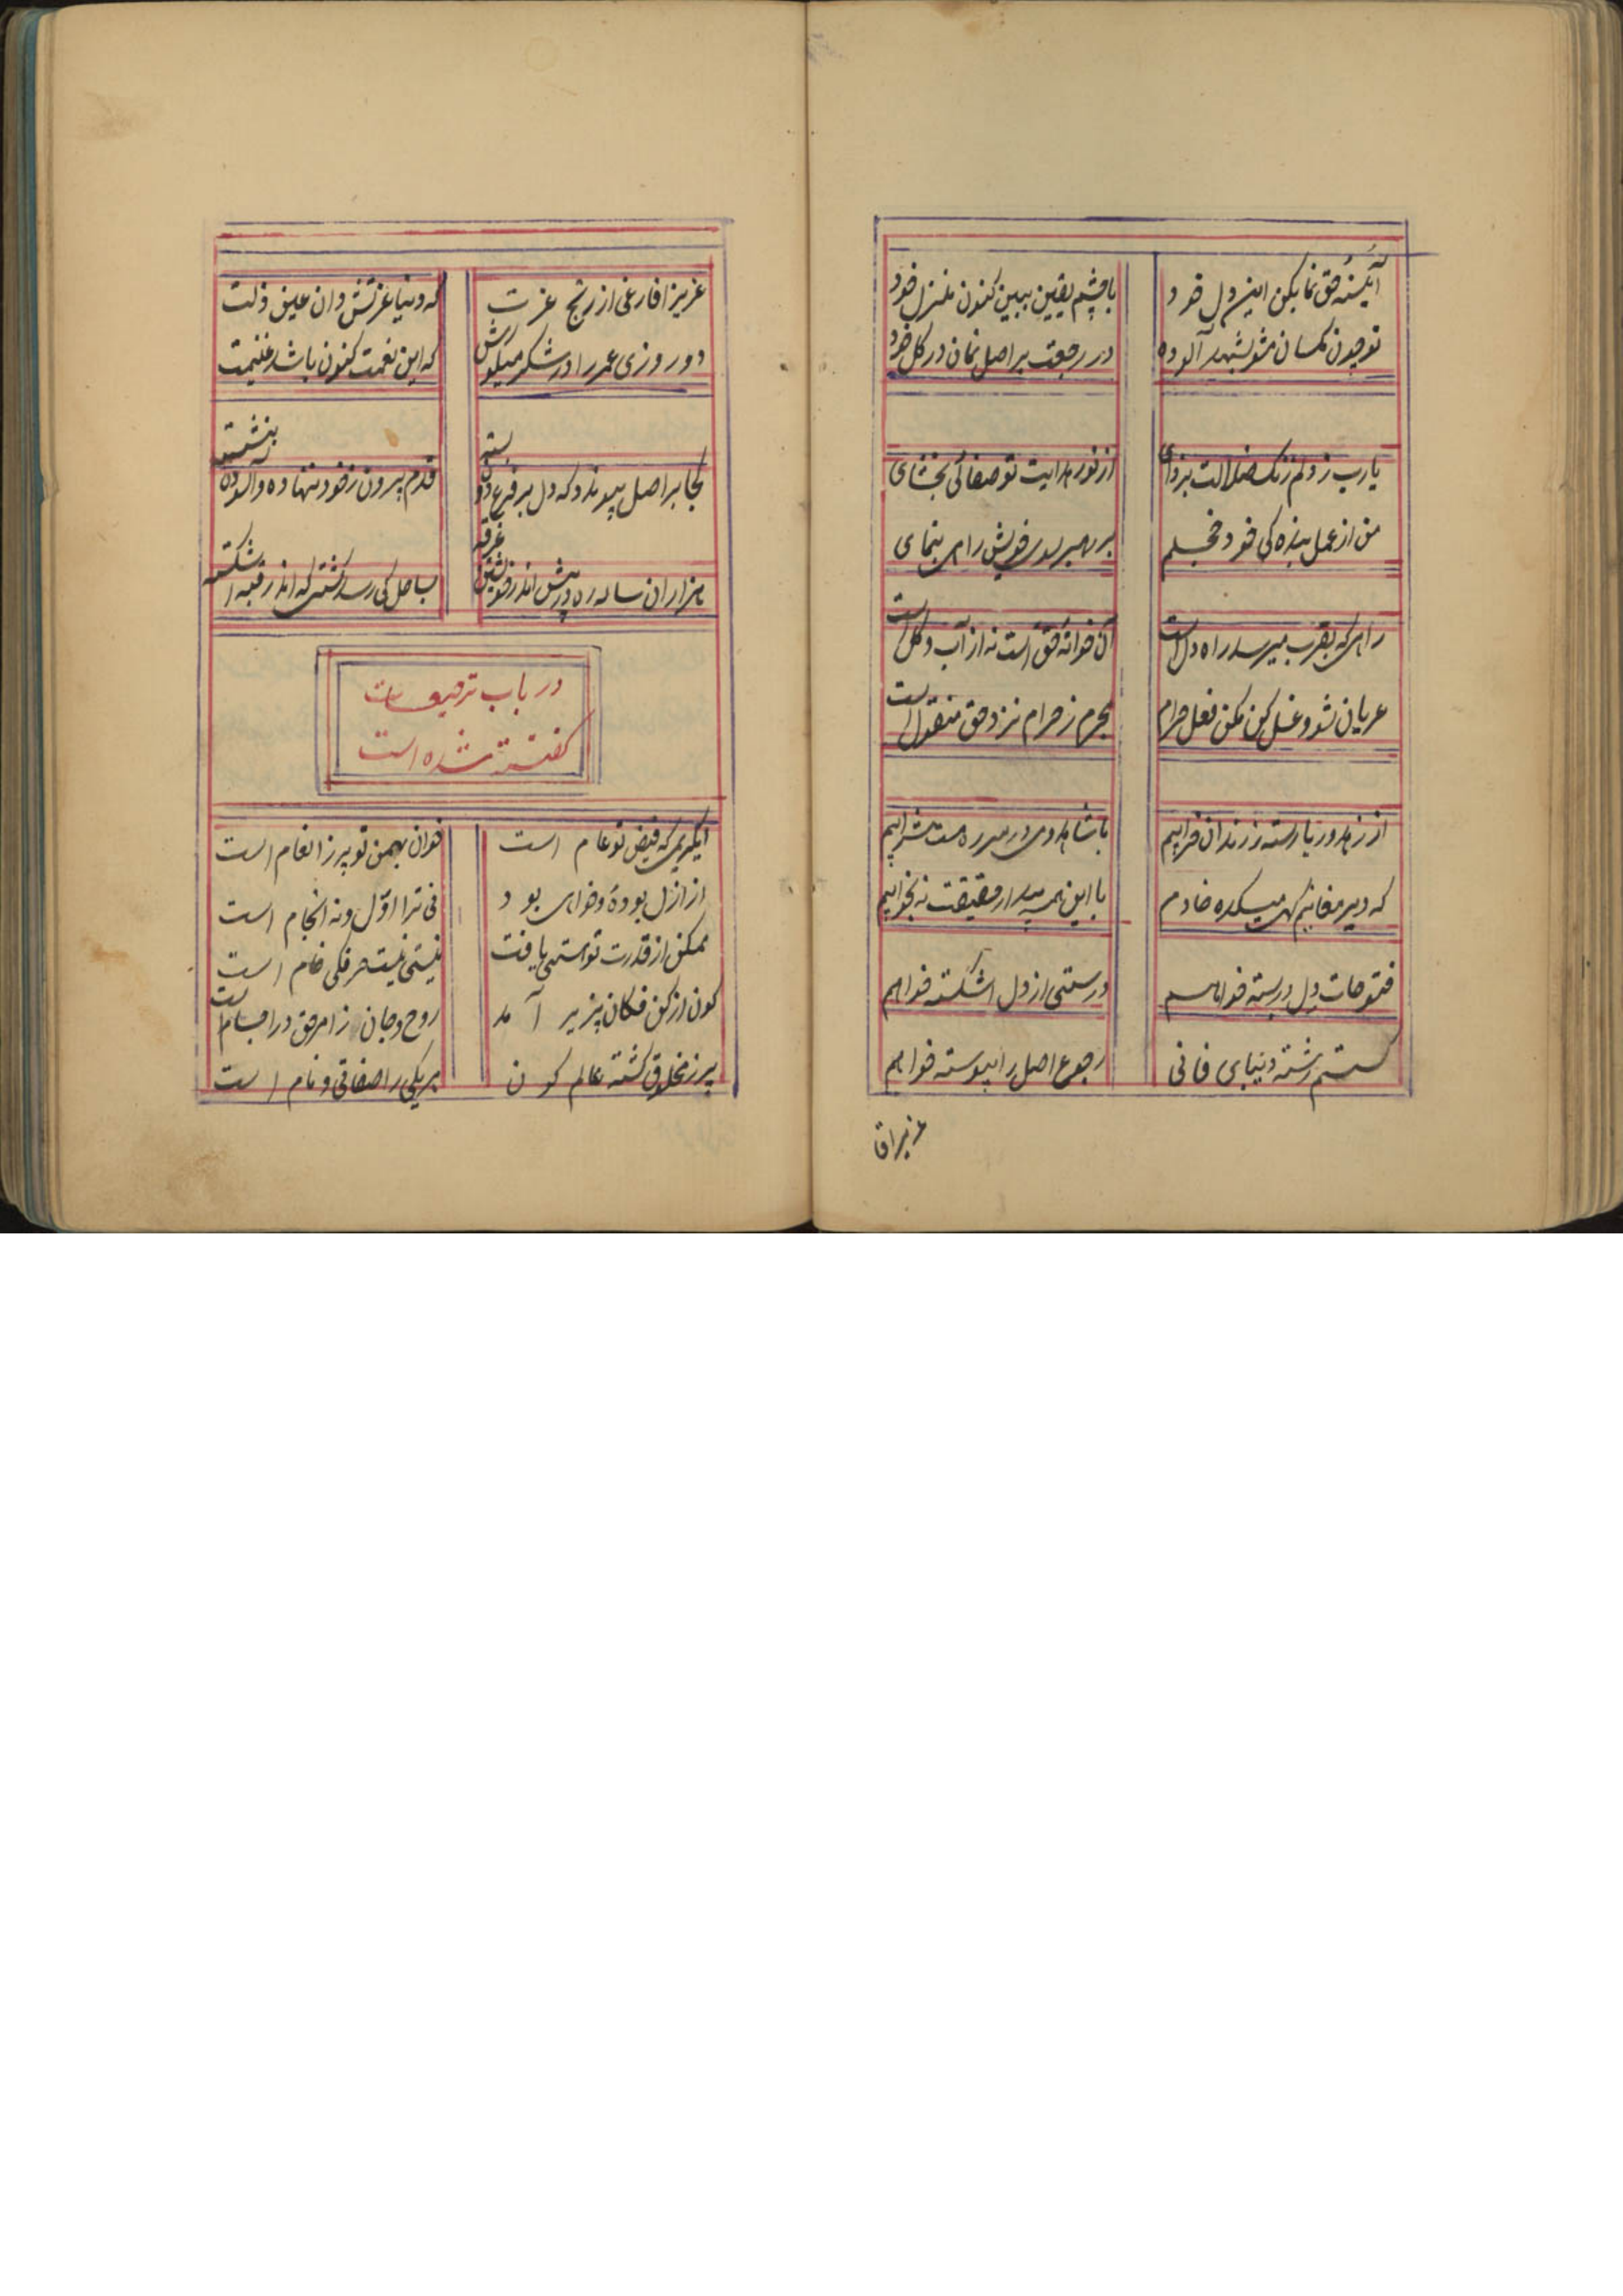 آئینه حق نما بکن این دل خود
با چشم یقین ببین کنون منزل خود
تو چون مگسان مشو بشهد آلوده
در رجعت بر اصل نمان در گل خود
یارب ز دلم زنک ضلالت بزدای
از نور هدایت تو صفائی بخشای
من از عمل بنده کی خود خجلم
بر رهبر سوی خویش راهی بنمای
راهی که بقرب میرسد راه دل است
آن خوانهٔ حق است نه از آب و گل است
عریان شو و غسل کن مکن فعل حرام
محرم ز حرام نزد حق منفعل است
از زهد و ریا رسته ز زندان خرابیم
با شاهد و می در سر ره مست شرابیم
که دیر مغانیم کهی میکده خادم
با این همه بیدار حقیقت نه بخوابیم
فتوحات دل در بسته خواهم
درستی از دل اشکسته خواهم
کستم رشته دنیای فانی
رجوع اصل را پیوسته خواهم
عزیزا
عزیزا فارغی از رنج عزت
که دنیا عزتش دان عین ذلت
دو روزی عمر را در شکر میکوش
که این نعمت کنون باشد غنیمت
کجا بر اصل پیوندد که دل بر فرع دون بسته
قدم بیرون ز خود ننهاده و آلوده بنشسته
هزاران ساله ره در پیش اندر خویشتن غرقه
بساحل کی رسد کشتی که اندر قبه اشکسته
در باب ترجیعات
گفته شده است
ایکریمی که فیض تو عام است
خوان بهمن تو پر ز انعام است
از ازل بودهٔ و خواهی بود
نی ترا اوّل و نه انجام است
ممکن از قدرت تو هستی یافت
نیستی نیست حرفکی خام است
کون از کن فکان پزیر آمد
روح و جان ز امر حق در اجسام است
پر ز مخلوق گشته عالم کون
هر یکی را صفاتی و نام است